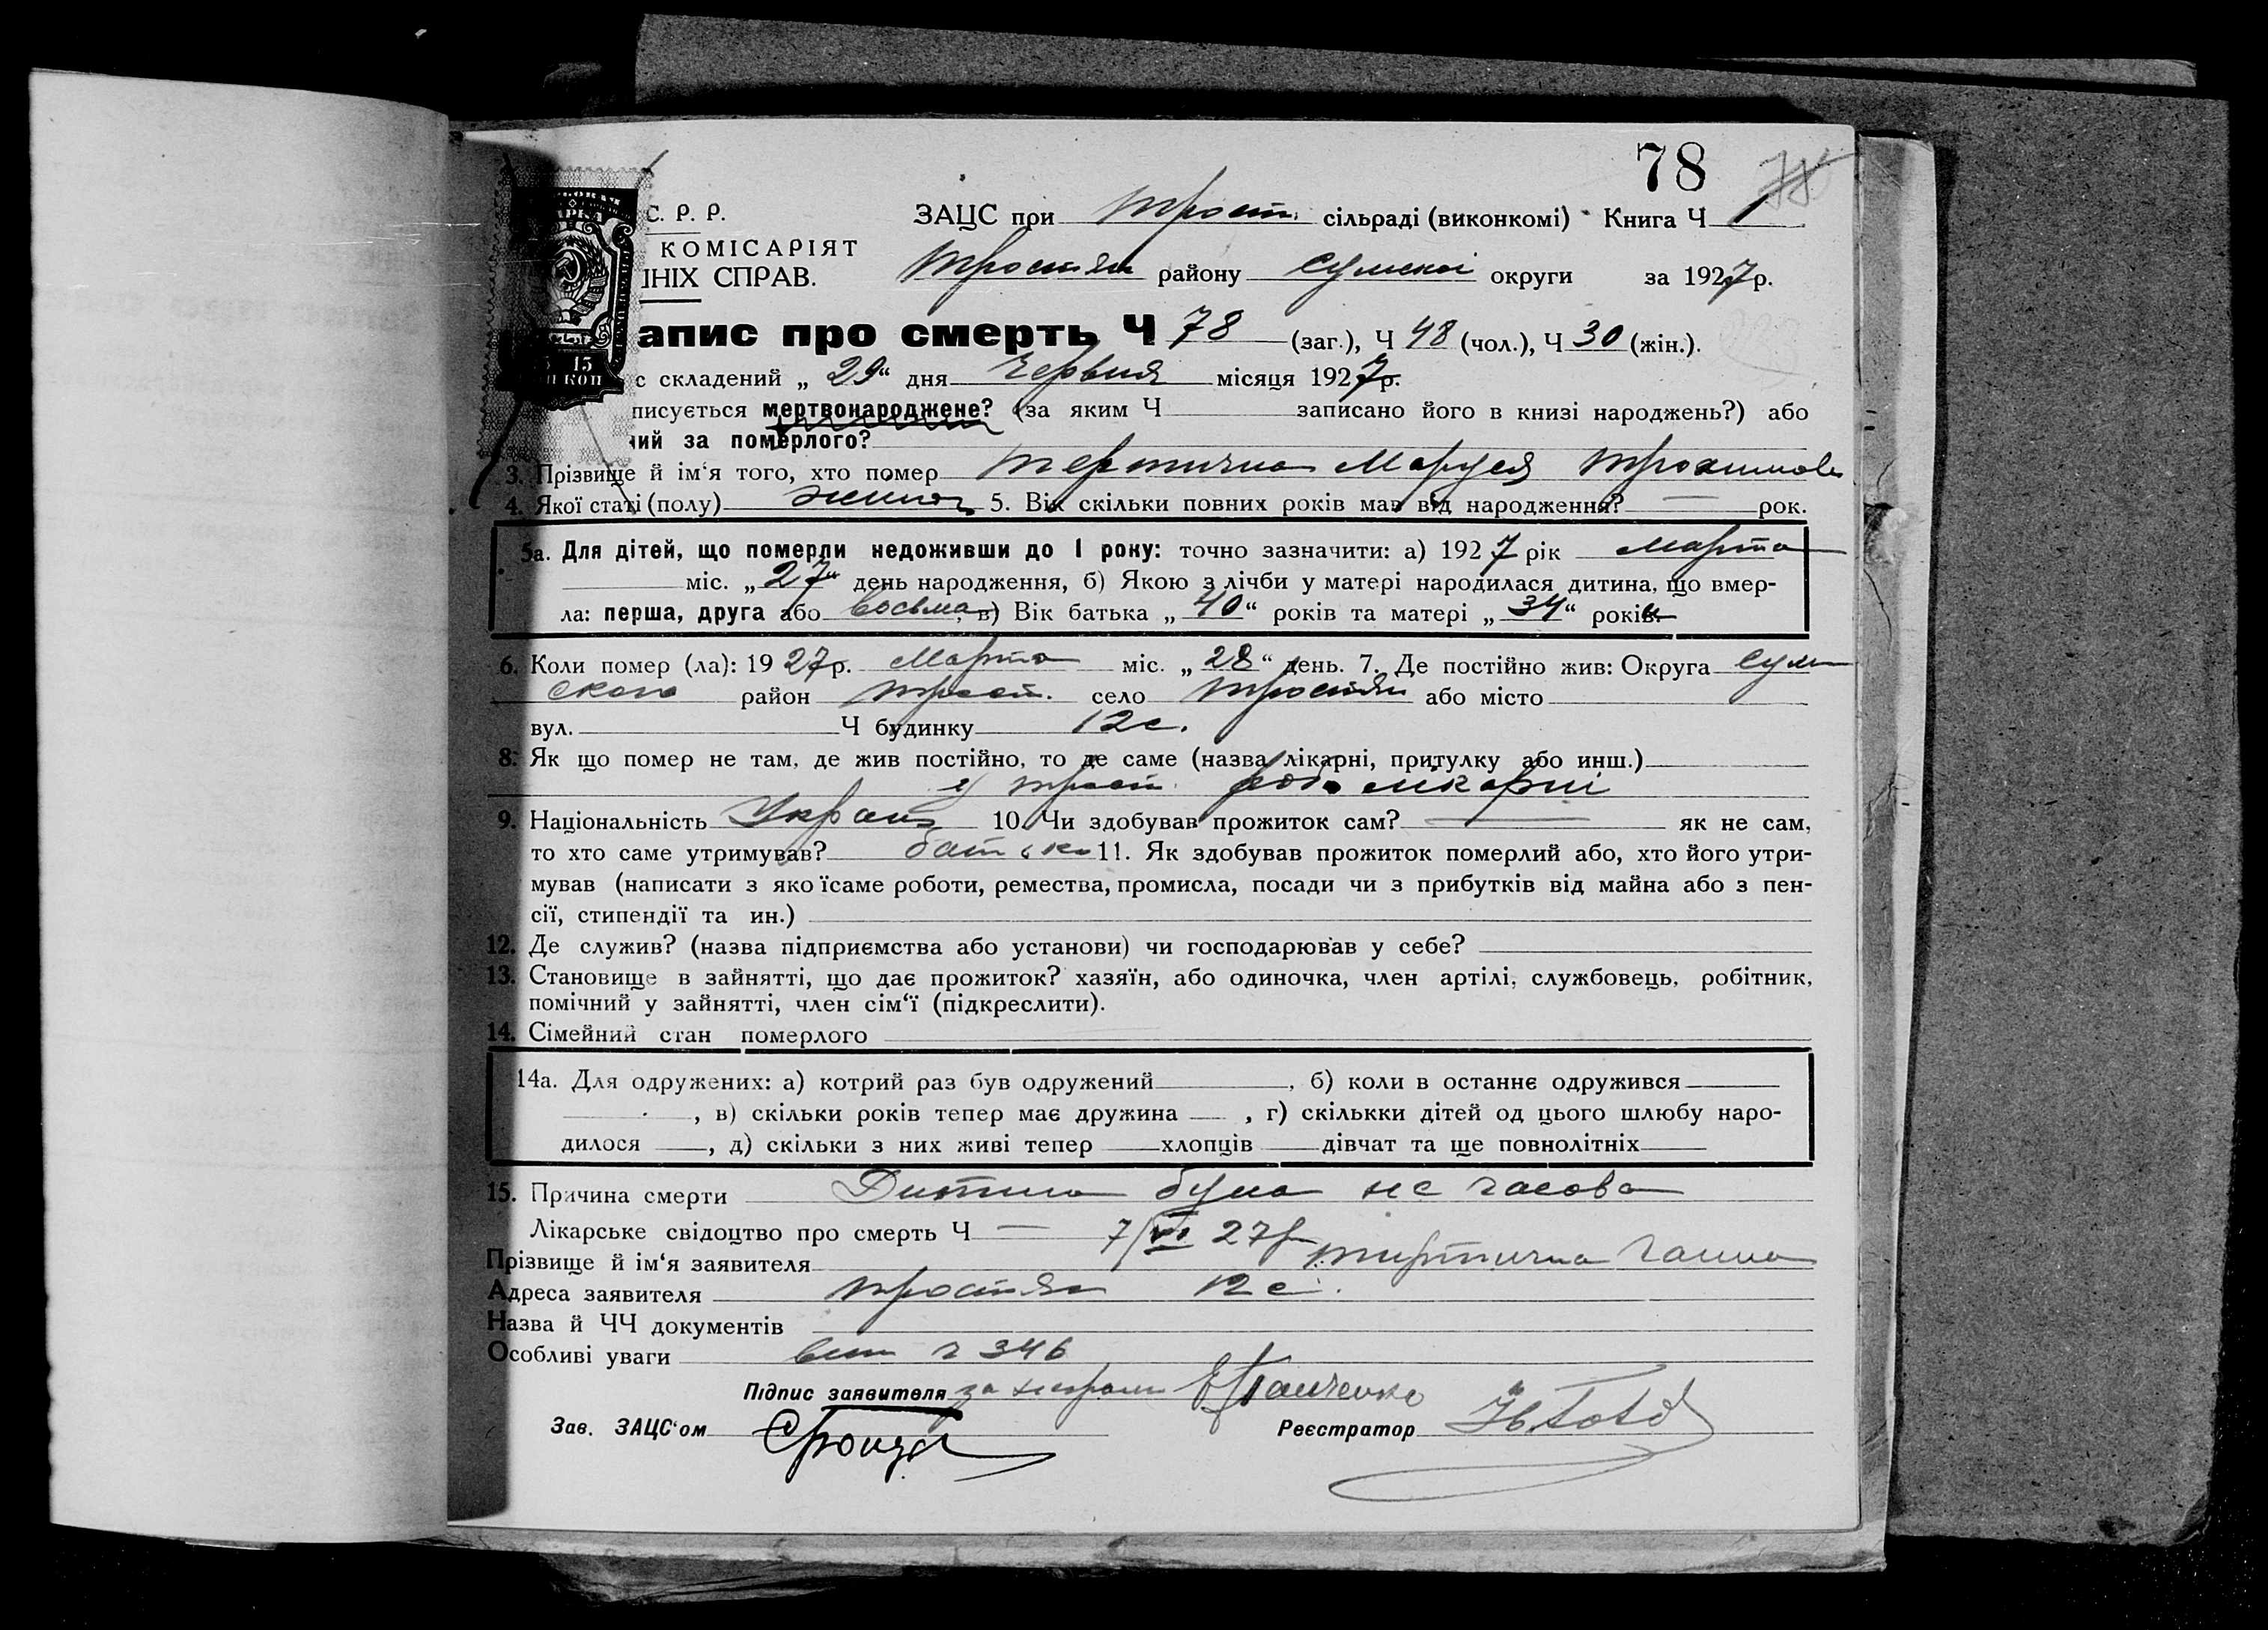 78
С. Р. Р.
ЗАЦС при Трост. сільраді (виконкомі) Книга Ч 1
КОМІСАРІЯТ
ІНІХ СПРАВ.
Тростян району Сумської округи за 1927 р.
апис про смерть Ч 78 (заг.), Ч 48 (чол.), Ч 30 (жін.).
15
КОП
с складений „ 29 “ дня Червня місяця 1927 р.
писується мертвонароджене? (за яким Ч записано його в книзі народжень?) або
ий за померлого?
3. Прізвище й ім‘я того, хто помер Тертична Маруся Трохимовн
4. Якої статі (полу) жиноч 5. Вік скільки повних років мав від народження? — рок.
5а. Для дітей, що померли недоживши до 1 року: точно зазначити: а) 1927 рік Марта
міс. „ 27 “ день народження, б) Якою з лічби у матері народилася дитина, що вмер-
ла: перша, друга або восьма, в) Вік батька „ 40 “ років та матері „ 34 “ років.
6. Коли помер (ла): 1927 р. Марта міс. „ 28 “ день. 7. Де постійно жив: Округа Сум
ского район Трост. село Тростян або місто
вул. Ч будинку 12 с.
8. Як що помер не там, де жив постійно, то де саме (назва лікарні, притулку або инш.)
у Трост. роб. лікарні
9. Національність Украин 10. Чи здобував прожиток сам? — як не сам,
то хто саме утримував? батько 11. Як здобував прожиток померлий або, хто його утри-
мував (написати з яко їсаме роботи, ремества, промисла, посади чи з прибутків від майна або з пен-
сії, стипендії та ин.)
12. Де служив? (назва підприємства або установи) чи господарював у себе?
13. Становище в зайнятті, що дає прожиток? хазяїн, або одиночка, член артілі, службовець, робітник,
помічний у зайнятті, член сім‘ї (підкреслити).
14. Сімейний стан померлого
14а. Для одружених: а) котрий раз був одружений , б) коли в останнє одружився
, в) скільки років тепер має дружина , г) скількки дітей од цього шлюбу наро-
дилося , д) скільки з них живі тепер хлопців дівчат та ще повнолітніх
15. Причина смерти Дитина була не часова
Лікарське свідоцтво про смерть Ч — 7/VI 27р
Прізвище й ім‘я заявителя Тиртична Ганна
Адреса заявителя Тростян 12 с.
Назва й ЧЧ документів
Особливі уваги вип ч 346
Підпис заявителя за неграм
Зав. ЗАЦС‘ом
Реєстратор